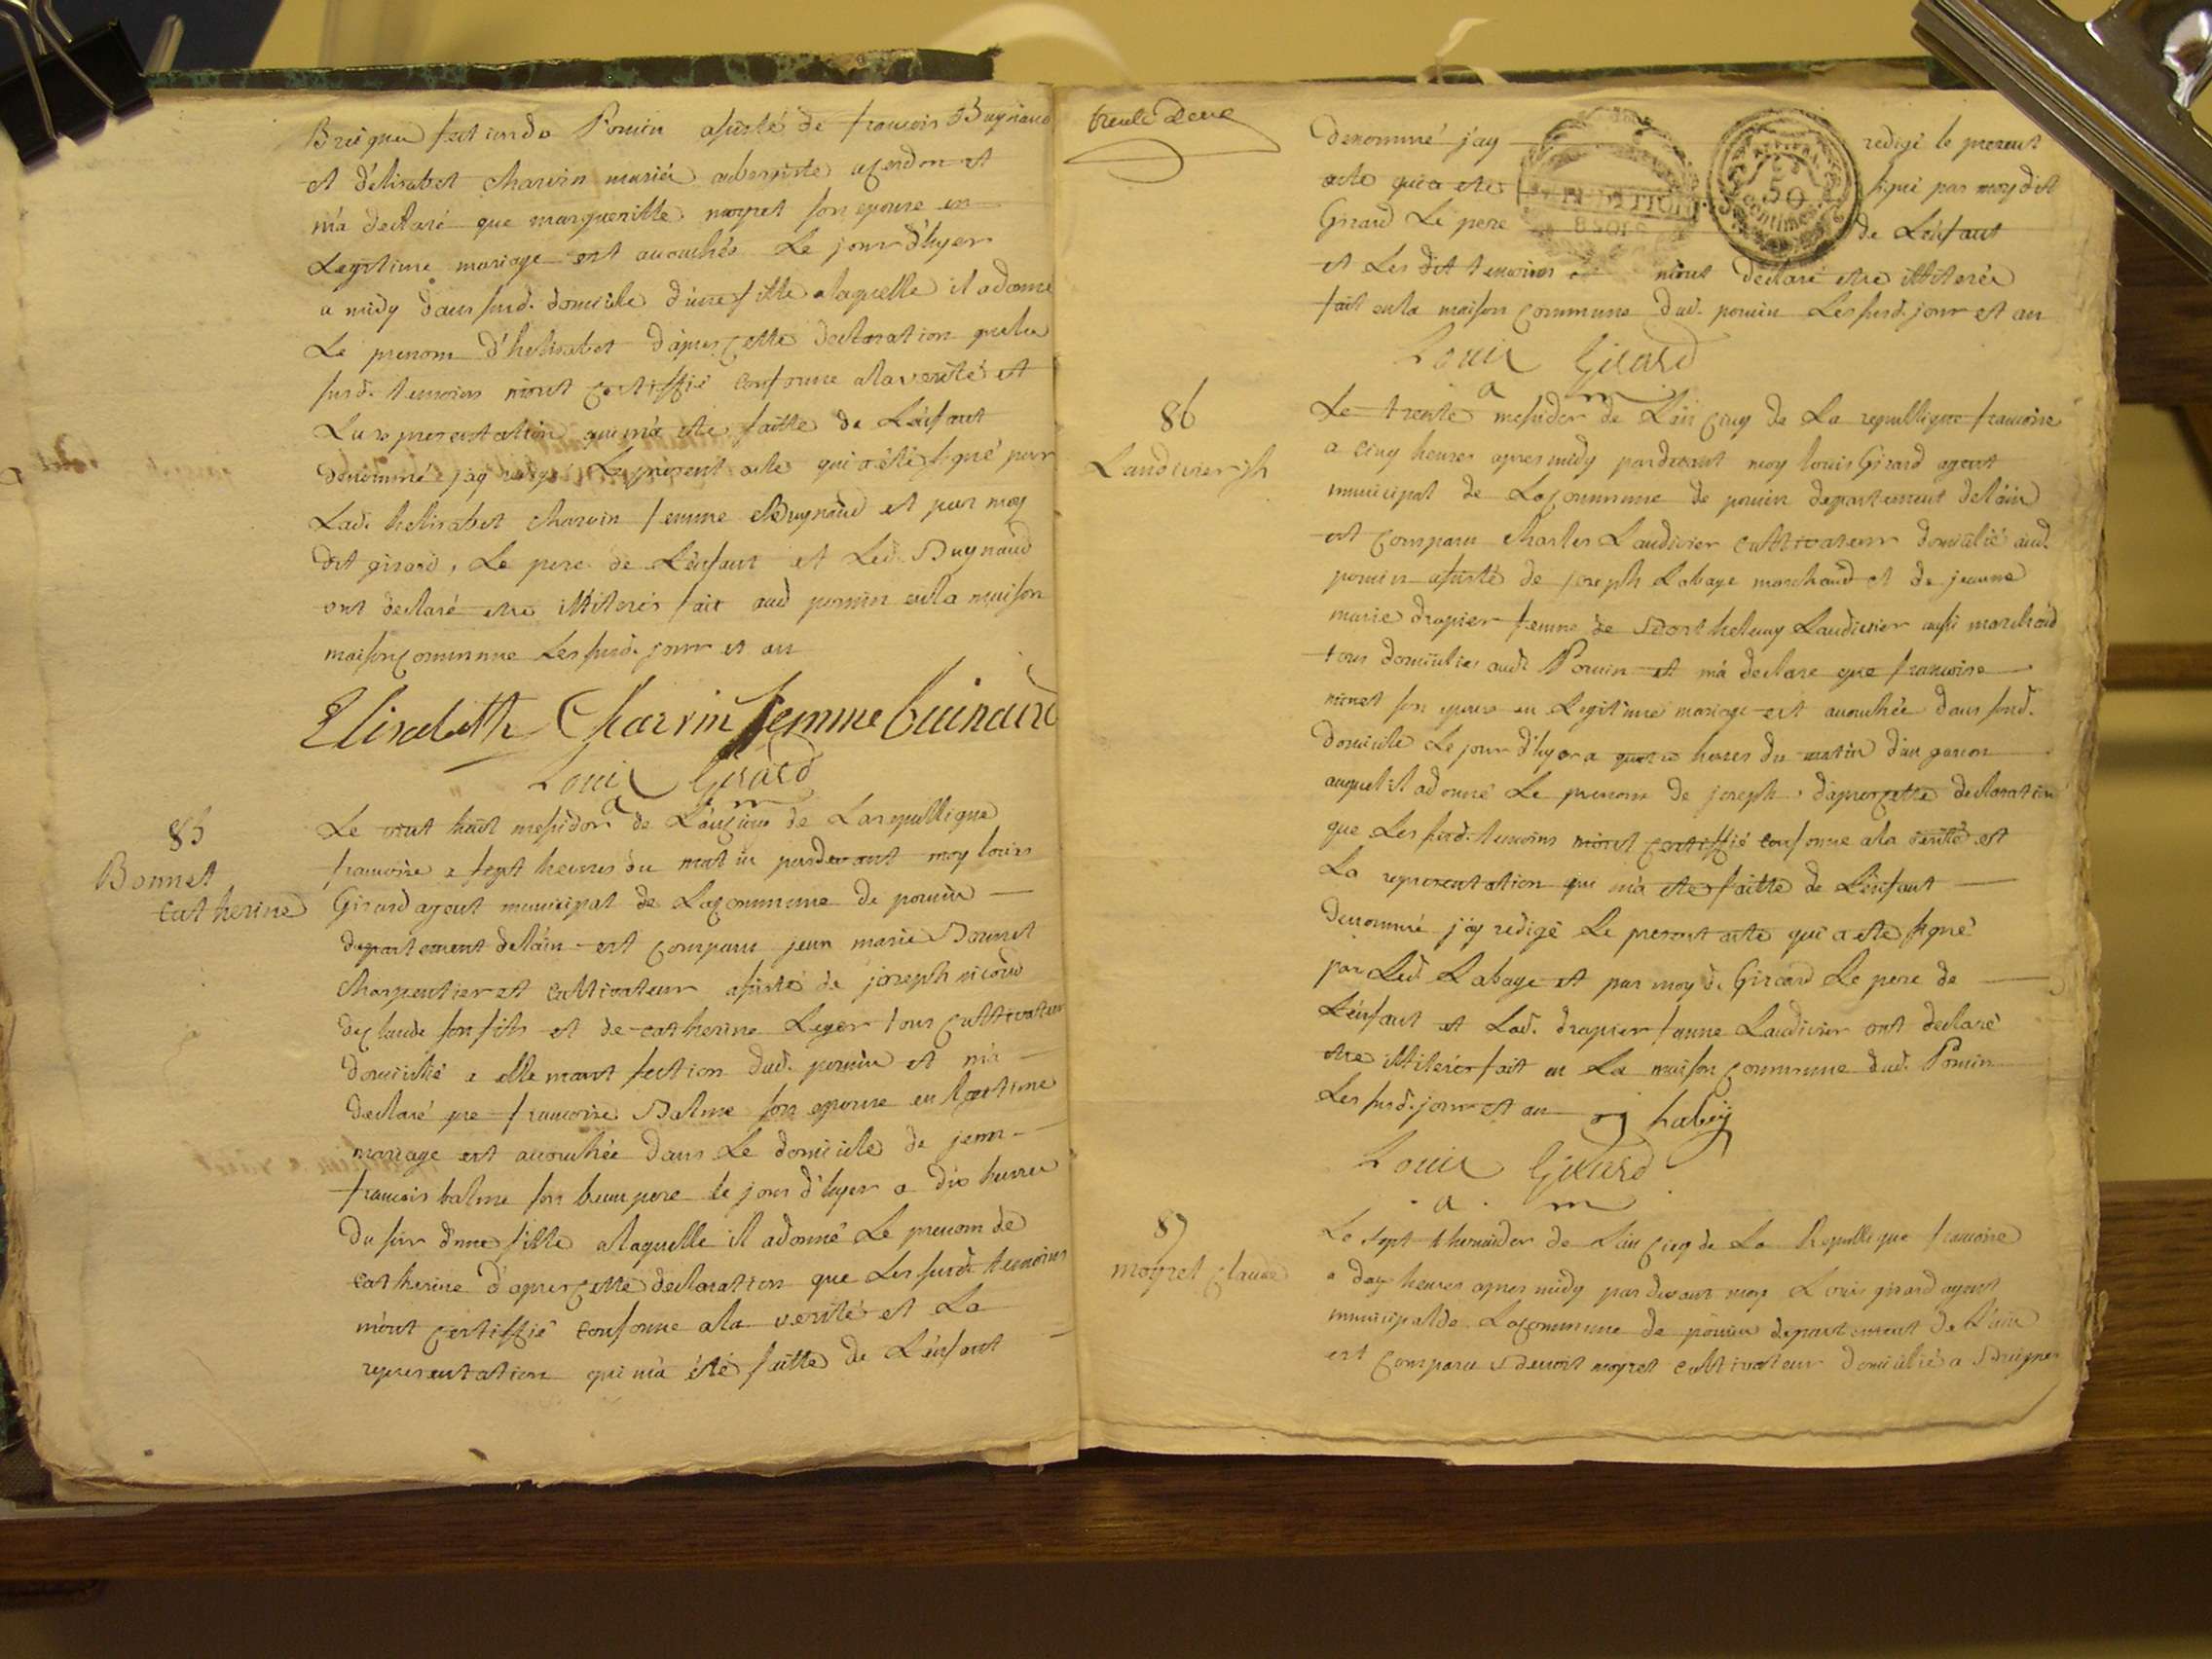 Brèignes section de Poncin assisté de francois Buynaud
et d'elisabet charvin mariés auberjiste a cerdon et
m'a declaré que margueritte moyret son epouse en
Legitime mariage est acouchée Le jour d'hyer
a midy dans sud. domicile d'une fille alaquelle il adonné
Le prenom d'helisabet d'apres cette declaration que les
susd. temoins m'ont certiffié conforme ala verité et
La representation qui m'a été faitte de L'enfant
denommé j'ay redigé Le present acte qui a été signé par
Lad. helisabet charvin femme Buynaud et par moy
dit girard, Le pere de L'enfant et Led. Buynaud
ont declaré etre illiterés fait aud poncin en la maison
maison commune Les susd. jour et an
Elisabeth Charvin femme Buinaud
Louis Girard
a m
85
Bonnet
catherine
Le vint huit messidor de L'an cinq de La republique
francoise a sept heures du matin pardevant moy louis
Girard agent municipal de La commune de poncin
departement de l'ain est comparu jean marie Bonnet
charpentier et cultivateur assisté de joseph nicoud
de claude son fils et de catherine Leger tous cultivateur
domicilié a allemant section dud. poncin et m'a
declaré que francoise Balme son epouse en legitime
mariage est acouchée dans Le domicile de jean
francois balme son beaupere le jour d'hyer a dix heures
du soir d'une fille alaquelle il adonné Le prenom de
catherine d'apres cette declaration que Les susd. temoins
m'ont certiffié conforme ala verité et La
representation qui m'a été faitte de L'enfant
trente deux
denommé j'ay redigé le present
acte qui a eté signé par moy dit
Girard Le pere de L'enfant
et Les dit temoins m'ont declaré etre illiterés
fait en la maison commune dud. poncin Les susd. jour et an
50
centimes
Louis Girard
a m
86
Landivier jh
Le trente messidor de L'an cinq de La republique francoise
a cinq heures apres midy pardevant moy louis Girard agent
municipal de La commune de poncin departement de l'ain
est comparu charles Landivier cultivateur domicilié aud.
poncin assisté de joseph Labaye marchand et de jeanne
marie drapier femme de Barthelemy Landivier aussi marchand
tous domiciliés aud. Poncin et m'a declaré que francoise
minet son epouse en Legitime mariage est acouchée dans sond.
domicile Le jour d'hyer a quatre heures du matin d'un garcon
auquel il adonné Le prenom de joseph d'apres cette declaration
que Les susd. temoins m'ont certiffié conforme ala verité et
La representation qui m'a eté faitte de L'enfant
denommé j'ay redigé Le present acte qui a eté signé
par Led. Labaye et par moy d. Girard Le pere de
L'enfant et Lad. drapier femme Landivier ont declaré
etre illiterés fait en La maison commune dud. Poncin
Les susd. jour et an
Louis Girard
a m
87
moyret claude
Le sept thermidor de L'an cinq de La Republique francoise
a heures apres midy par devant moy Louis girard agent
municipal de La commune de poncin departement de L'ain
est comparu Benoit moyret cultivateur domicilié a Breignes